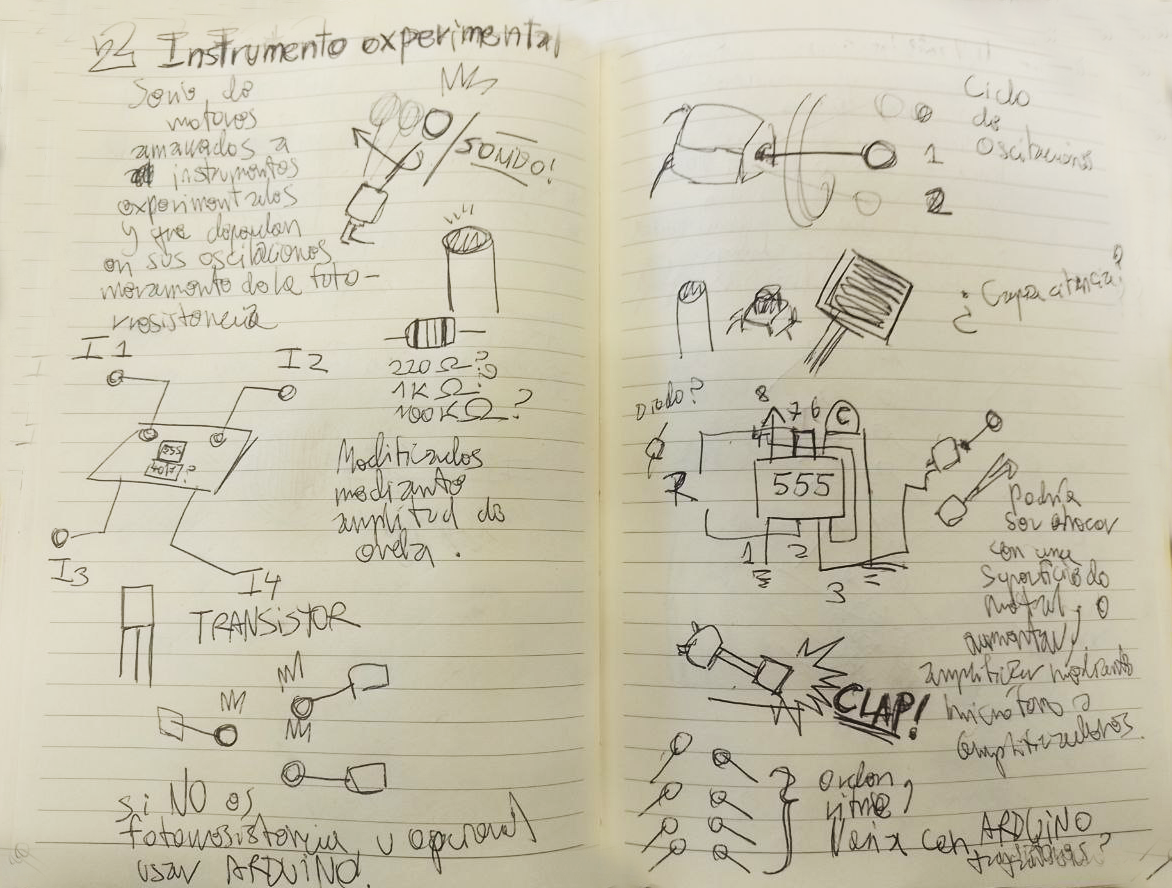 Instrumento experimental
Serie de
motores
amarrados a
instrumentos
experimentales
y que dependan
en sus oscilaciones
movimiento de la foto-
rresistencia
SONIDO!
220 Ω?
1K Ω?
100K Ω?
I1
I2
555
4017?
I3
I4
Modificados
mediante
amplitud de
onda.
TRANSISTOR
si NO es
fotorresistencia, u opcional
usar ARDUINO.
Ciclo
de
Oscilaciones
1
2
¿Capacitancia?
Diodo?
8
7
6
C
4
R
555
1
2
3
Podría
ser chocar
con una
superficie de
metal, o
aumentar,
amplificar mediante
micrófono o
amplificadores.
CLAP!
orden,
ritmo,
Varía con ARDUINO